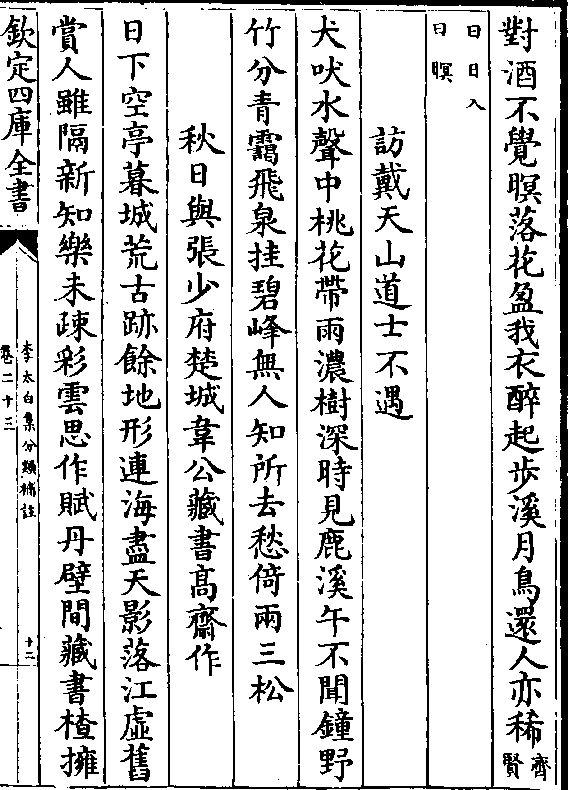 對酒不覺暝落花盈我衣醉起步溪月鳥還人亦稀齊賢
曰日入
曰暝
訪戴天山道士不遇
犬吠水聲中桃花帶雨濃樹深時見鹿溪午不聞鐘野
竹分青靄飛泉挂碧峰無人知所去愁倚兩三松
秋日與張少府楚城韋公藏書髙齋作
日下空亭暮城荒古跡餘地形連海盡天影落江虛舊
賞人雖隔新知樂未疎彩雲思作賦丹壁間藏書楂擁
欽定四庫全書
李太白集分類補註
卷二十三
十二